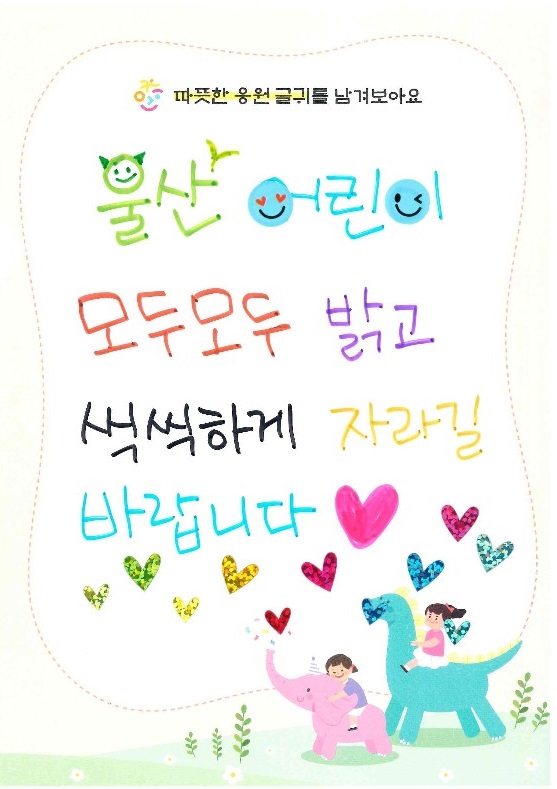 따뜻한 응원 글귀를 남겨보아요
울산 어린이
모두모두 밝고
씩씩하게 자라길
바랍니다